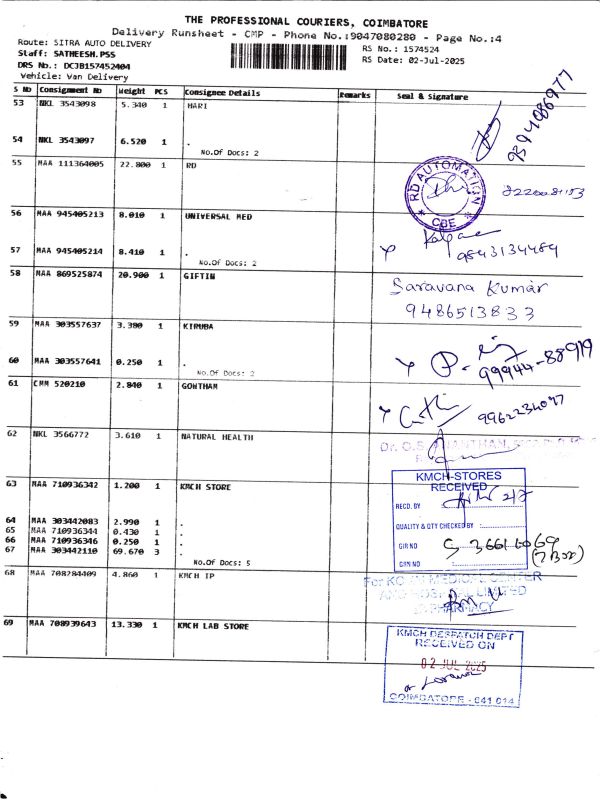 THE PROFESSIONAL COURIERS, COIMBATORE
Delivery Runsheet - CMP - Phone No.:9047080280 - Page No.:4
Route: SITRA AUTO DELIVERY
RS No.: 1574524
Staff: SATHEESH.PSS
RS Date: 02-Jul-2025
DRS No.: DCJB157452404
Vehicle: Van Delivery
S No Consignment No Weight PCS Consignee Details Remarks Seal & Signature
53 NKL 3543098 5.340 1 HARI
9894086977
54 NKL 3543097 6.520 1 .
No.Of Docs: 2
55 MAA 111364005 22.800 1 RD
RD AUTOMATION
CBE
56 MAA 945405213 8.010 1 UNIVERSAL MED
57 MAA 945405214 8.410 1 .
9843134484
No.Of Docs: 2
58 MAA 869525874 20.900 1 GIFTIN
Saravana Kumar
9486513833
59 MAA 303557637 3.380 1 KIRUBA
60 MAA 303557641 0.250 1 .
99944-88919
No.Of Docs: 2
61 CMM 520210 2.840 1 GOWTHAM
9962234097
62 NKL 3566772 3.610 1 NATURAL HEALTH
63 MAA 710936342 1.200 1 KMCH STORE
KMCH-STORES
RECEIVED
RECD. BY
64 MAA 303442083 2.990 1 .
65 MAA 710936344 0.430 1 .
QUALITY & QTY CHECKED BY
66 MAA 710936346 0.250 1 .
67 MAA 303442110 69.670 3 .
GIR NO
No.Of Docs: 5
GRN NO
68 MAA 708284409 4.860 1 KMCH IP
PHARMACY
69 MAA 708939643 13.330 1 KMCH LAB STORE
KMCH DESPATCH DEPT
RECEIVED ON
02 JUL 2025
COIMBATORE - 641 014